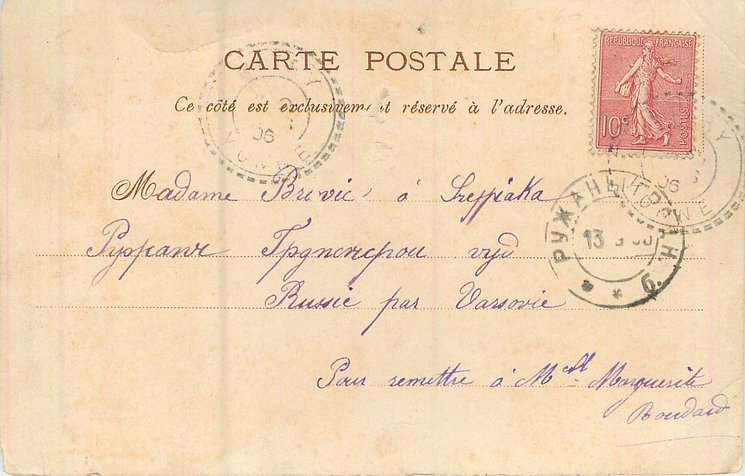 CARTE POSTALE
Ce côté est exclusivement réservé à l'adresse.
REPUBLIQUE FRANÇAISE
10c
POSTES
06
YONNE
06
YONNE
РУЖАНЫ ГРОДН. Г.
13
б.
Madame Brivic à
Ружаны Гродненской губ
Russie par Varsovie
Pour remettre à Melle Marguerite
Boudard